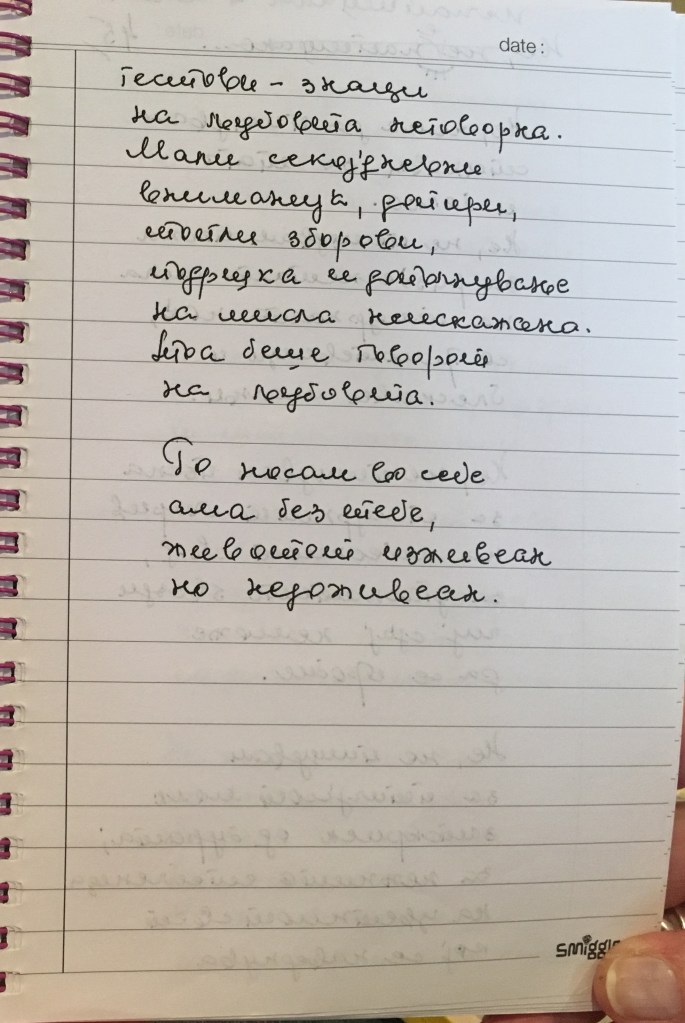 date:
гестови - знаци
на љубовта неговорна.
Мали секојдневни
вниманија, допири,
топли зборови,
подршка и дополнување
на мисла неискажана.
Тоа беше говорот
на љубовта.
Го носам во себе
ама без тебе,
животот изживеан
но недоживеан.